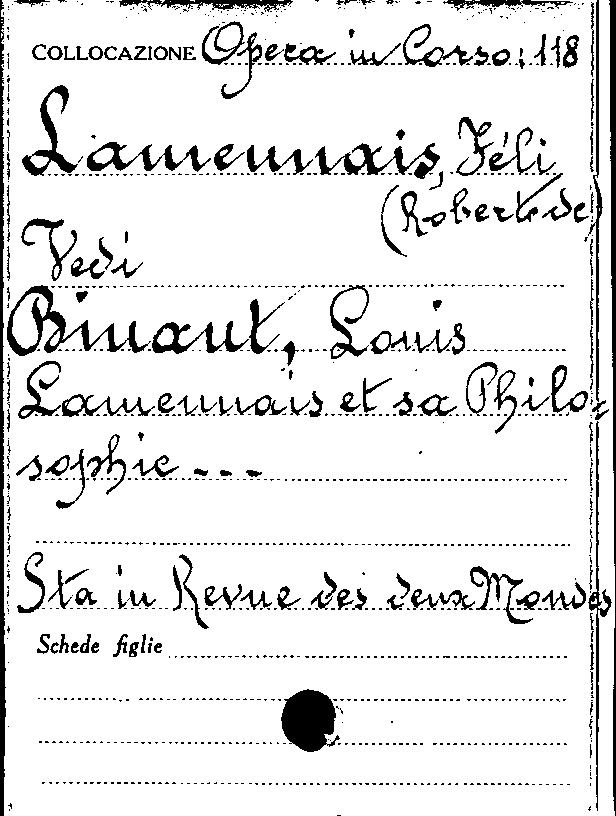 COLLOCAZIONE Opera in Corso: 118
Lamennais, Féli
(Robert de)
Vedi
Binaut, Louis
Lamennais et sa Philo=
sophie ---
Sta in Revue des deux Mondes
Schede figlie